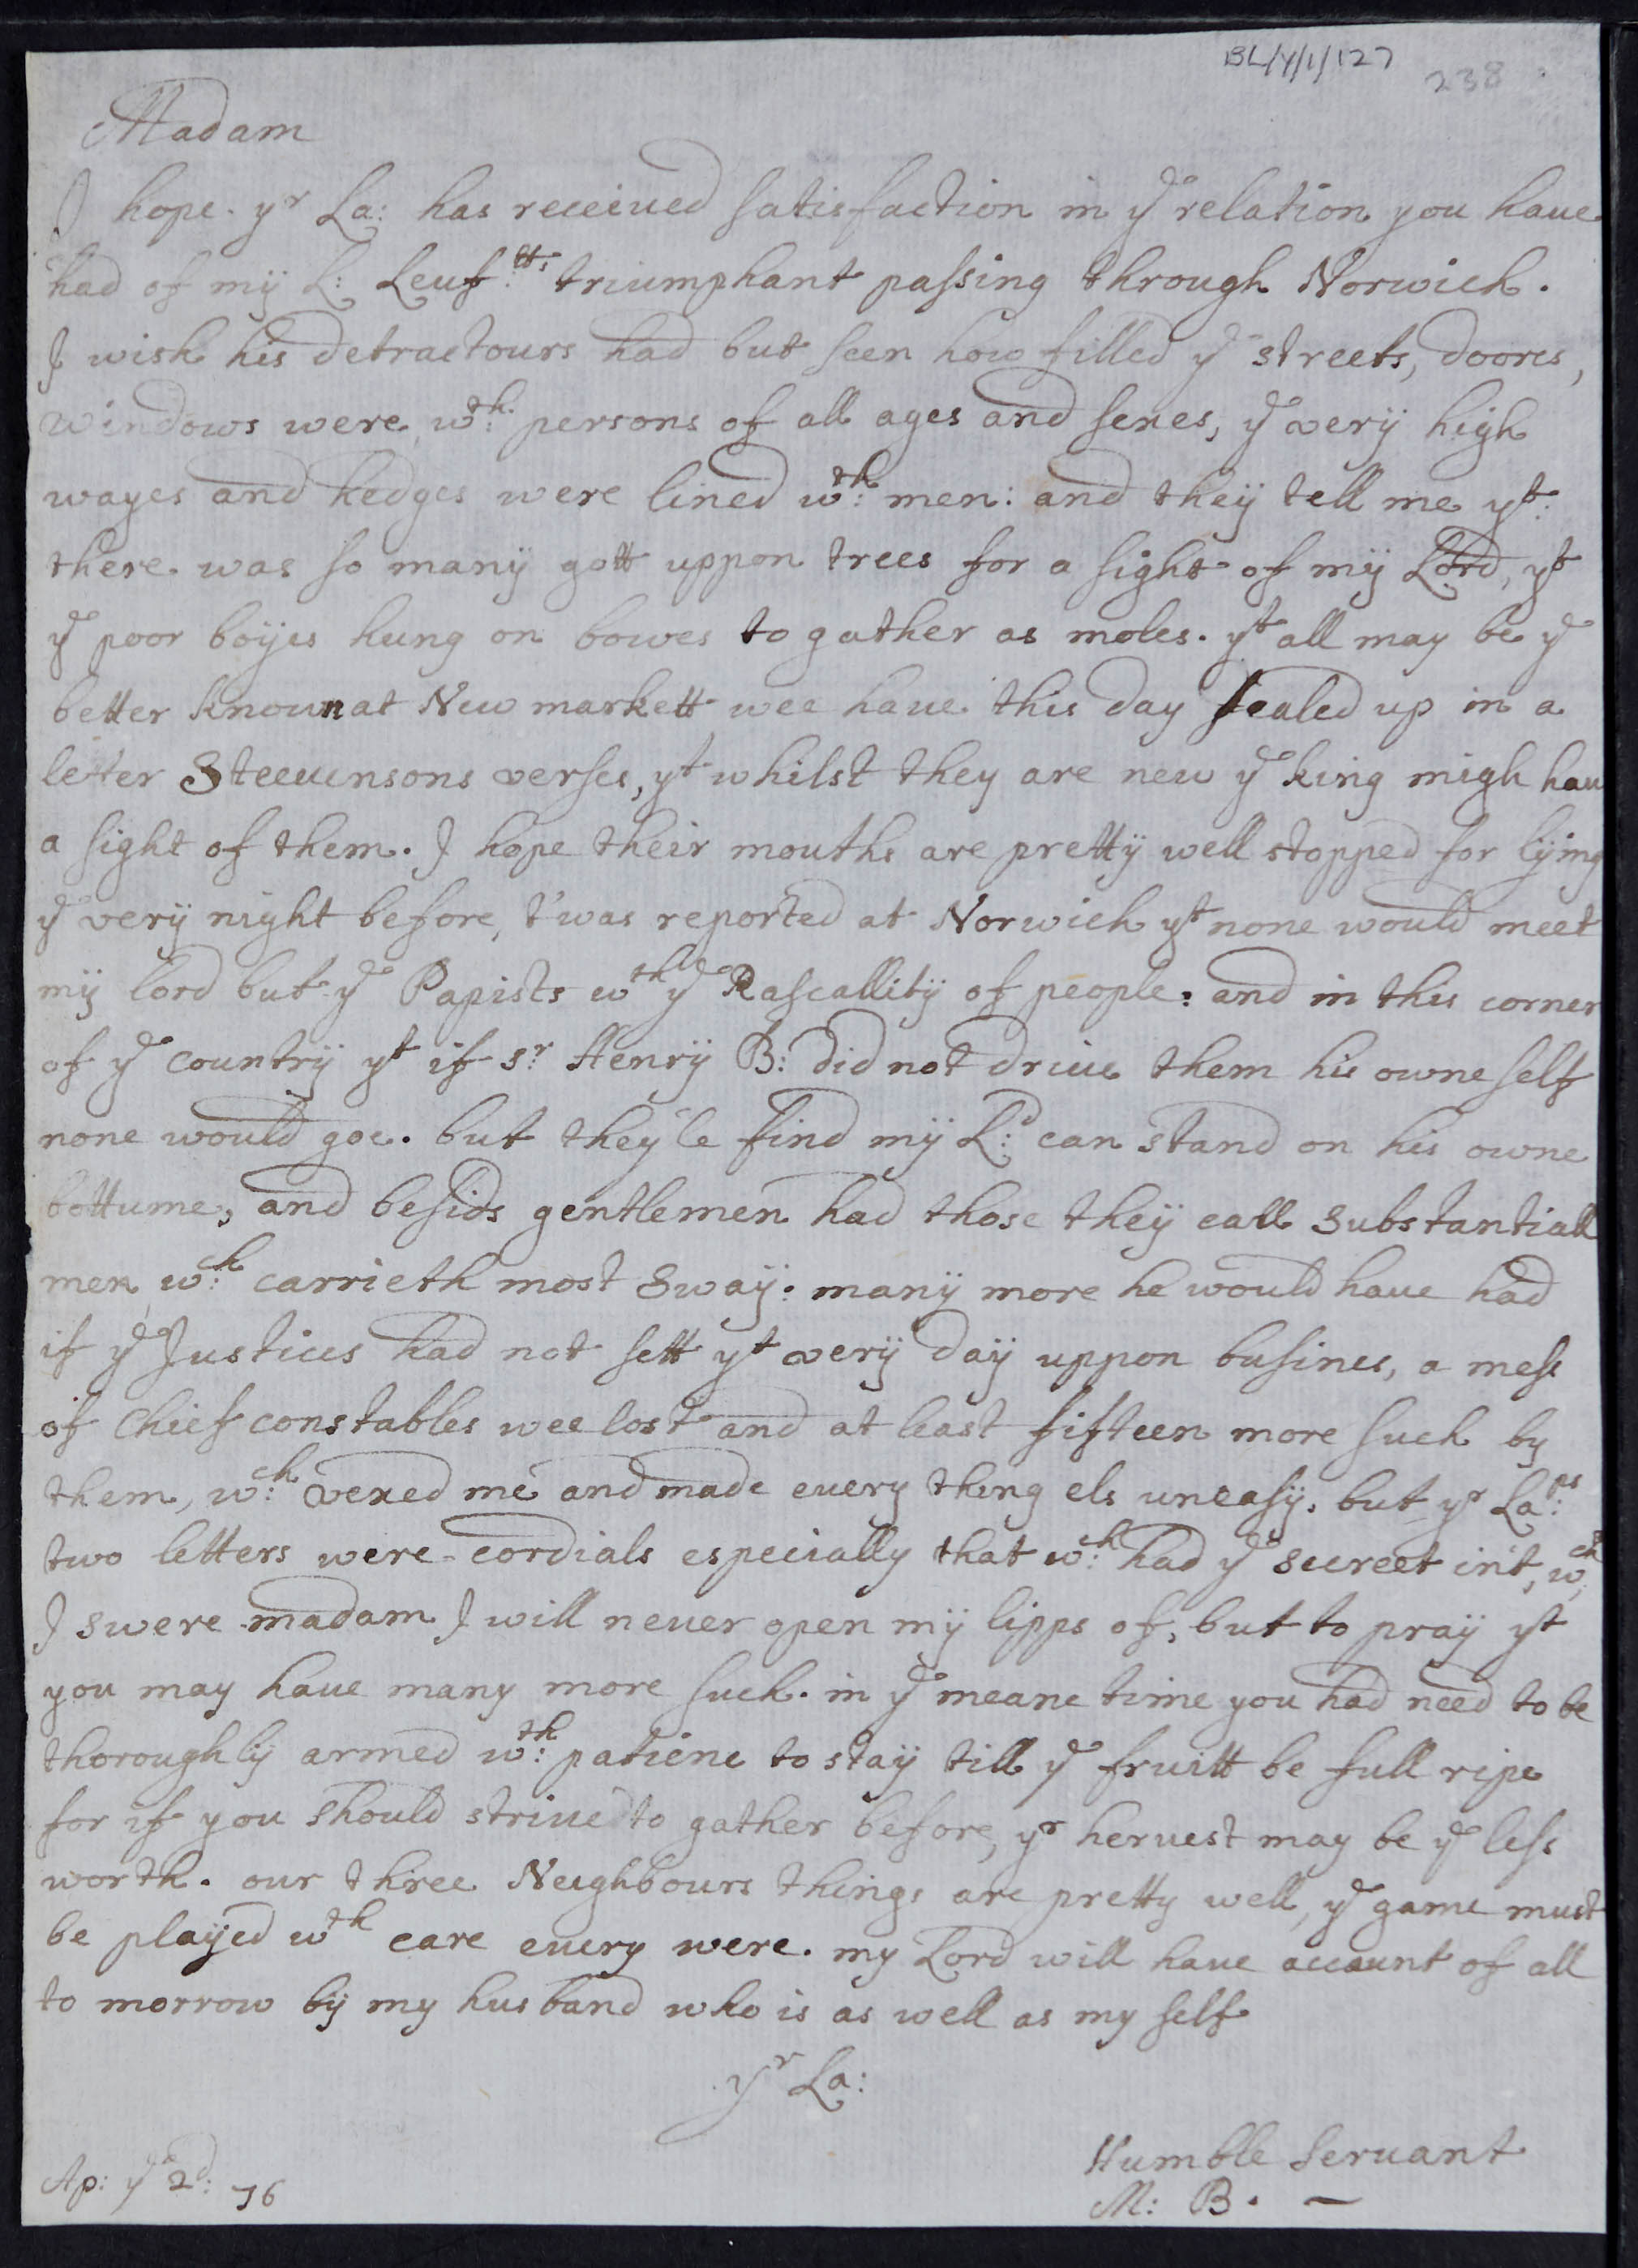 BL/Y/1/127
238
Madam
I hope yr La: has receiued satisfaction in ye relation you haue
had of my L: Leuf:tts triumphant passing through Norwich.
I wish his detractours had but seen how filled ye streets, doores,
windows were wth: persons of all ages and sexes, ye very high
wayes and hedges were lined wth: men: and they tell me yt:
there was so many gott uppon trees for a sight of my Lord, yt
ye poor boyes hung on bowes to gather as moles. yt all may be ye
better known at New markett wee haue this day sealed up in a
letter Steeuensons verses, yt whilst they are new ye king migh hau
a sight of them. I hope their mouths are pretty well stopped for lying
ye very night before, t'was reported at Norwich yt none would meet
my lord but ye Papists wth ye Rascallity of people: and in this corner
of ye country yt if sr: Henry B: did not driue them his owne self
none would goe. but they'le find my Ld: can stand on his owne
bottume, and besids gentlemen had those they call substantiall
men wch: carrieth most sway: many more he would haue had
if ye Justices had not sett yt very day uppon busines, a mess
of Chief constables wee lost and at least fifteen more such by
them, wch: vexed me and made euery thing els uneasy. but yr Laps:
two letters were cordials especially that wch: had ye secreet in't, wch:
I swere madam I will neuer open my lipps of, but to pray yt
you may haue many more such. in ye meane time you had need to be
thoroughly armed wth: patiene to stay till ye fruitt be full ripe
for if you should striue to gather before, yr heruest may be ye less
worth. our three Neighbours things are pretty well, ye game must
be played wth care euery were. my Lord will haue account of all
to morrow by my husband who is as well as my self
yr La:
Humble Seruant
M: B. —
Ap: ye 2d: 76